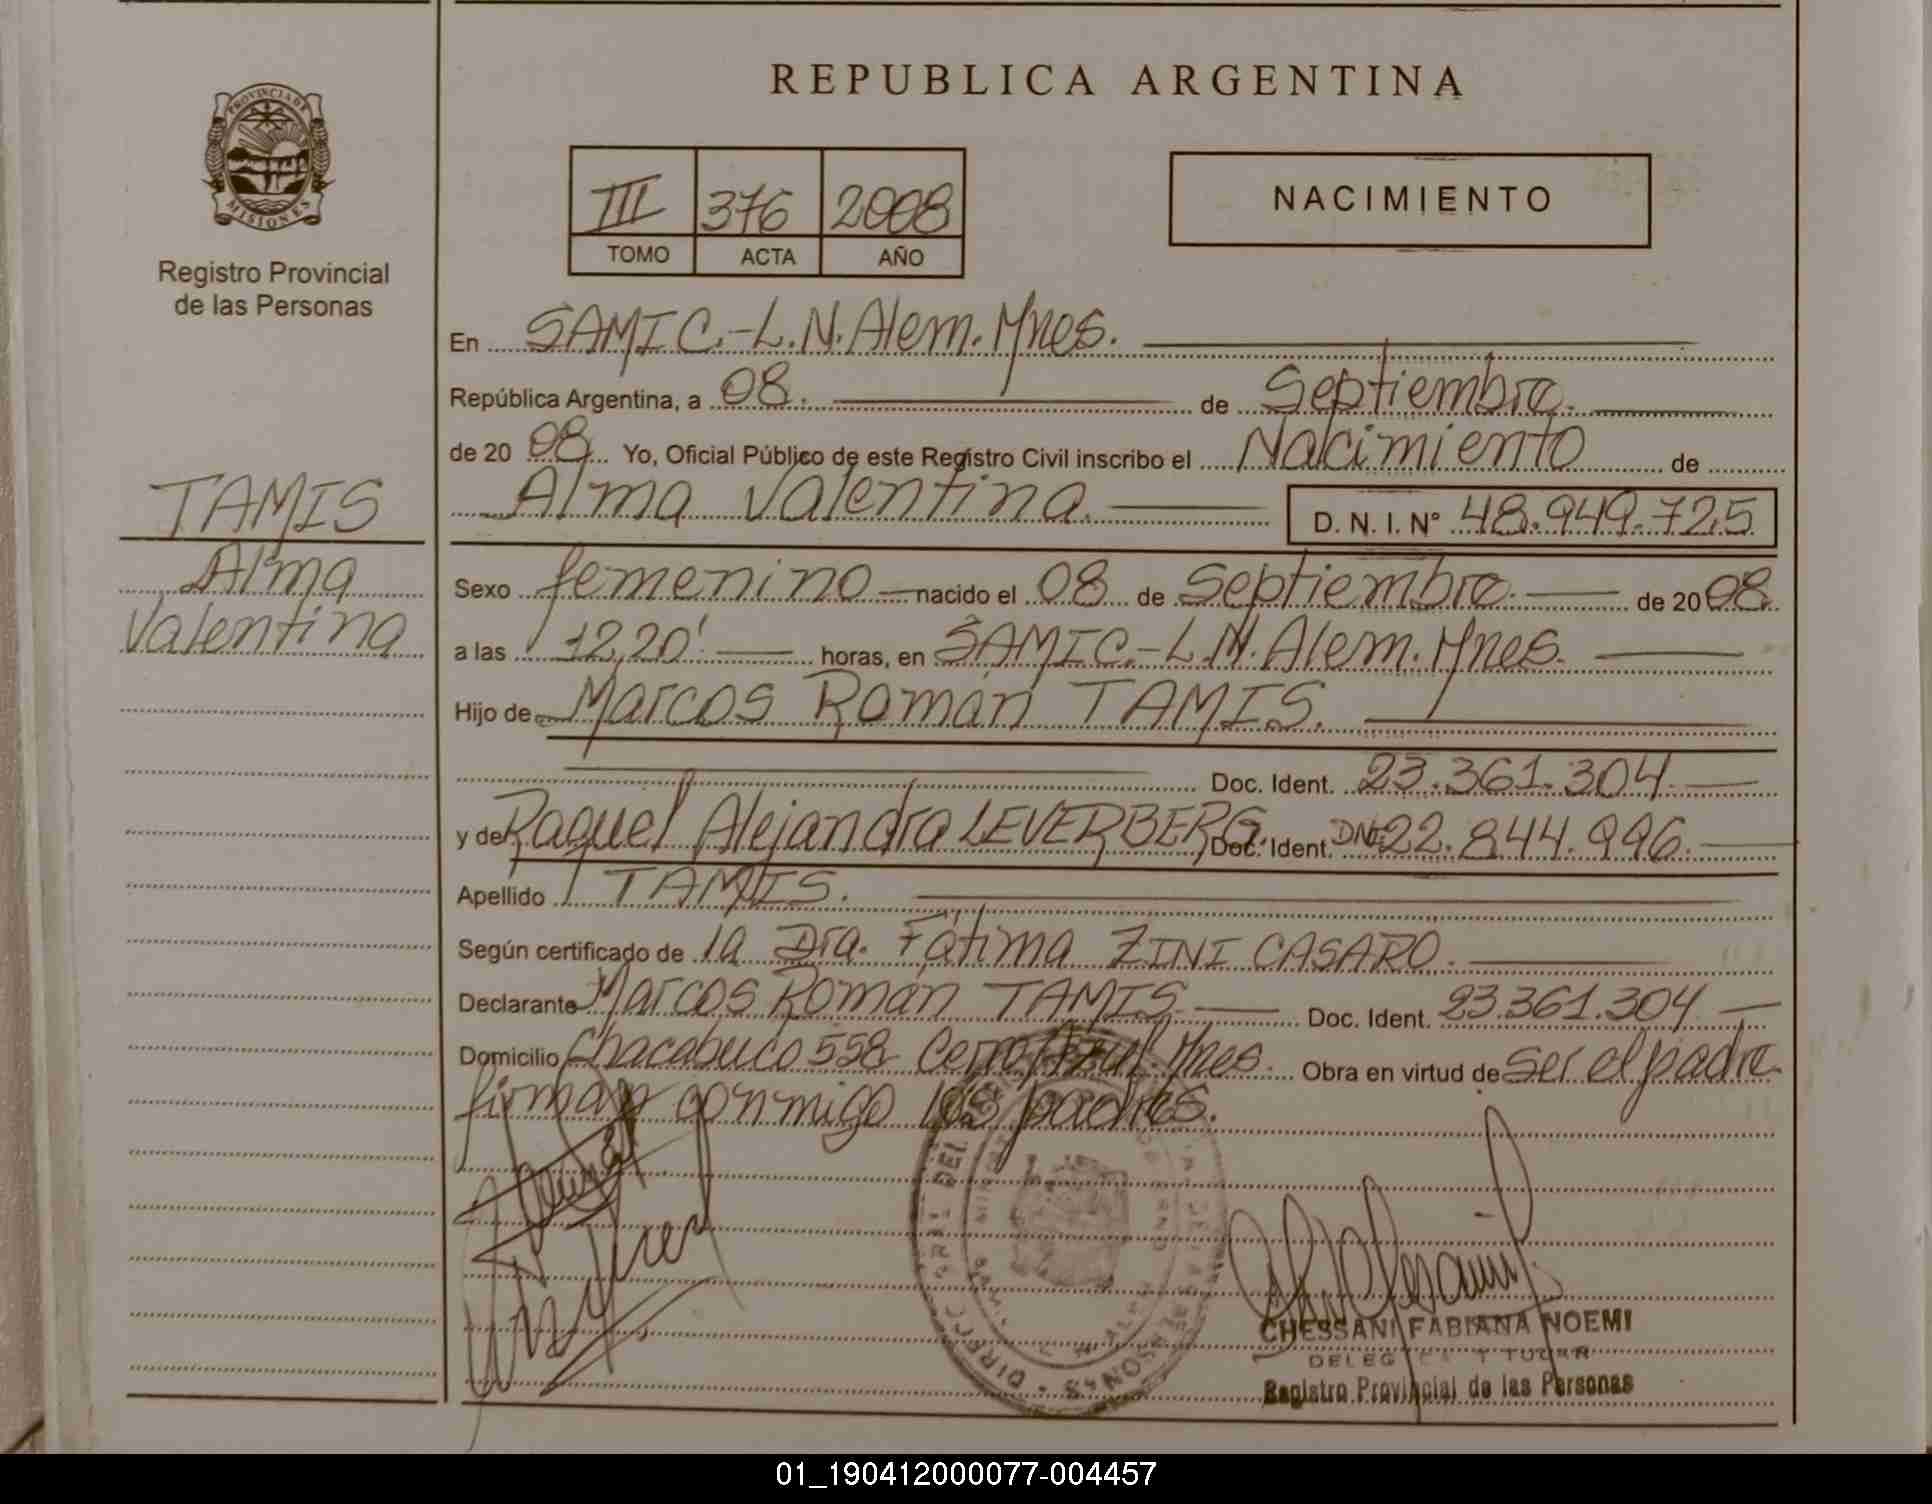 REPUBLICA ARGENTINA
PROVINCIA DE
MISIONES
Registro Provincial
de las Personas
III 376 2008
TOMO ACTA AÑO
NACIMIENTO
En SAMIC.-L.N.Alem.Mnes.
República Argentina, a 08. de Septiembre.
de 20 08 Yo, Oficial Público de este Registro Civil inscribo el Nacimiento de
Alma Valentina. D. N. I. N° 48.949.725
TAMIS
Alma
Valentina
Sexo femenino nacido el 08 de Septiembre. de 20 08.
a las 12,20' horas, en SAMIC.-L.N.Alem.Mnes.
Hijo de Marcos Román TAMIS.
Doc. Ident. 23.361.304.
y de Raquel Alejandra LEVERBERG. Doc. Ident. DNI 22.844.996.
Apellido TAMIS.
Según certificado de la Dra. Fátima ZINI CASARO.
Declarante Marcos Román TAMIS Doc. Ident. 23.361.304
Domicilio Chacabuco 558 Cerro Azul.Mnes. Obra en virtud de ser el padre
firman conmigo los padres.
CHESSANI FABIANA NOEMI
Registro Provincial de las Personas
01_190412000077-004457